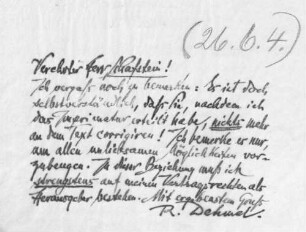 (26.6.4.)
Verehrter Herr Schafstein!
Ich vergaß noch zu bemerken: Es ist doch
selbstverständlich, daß Sie, nachdem ich
das Imprimatur erteilt habe, nichts mehr
an dem Text corrigiren! Ich bemerke es nur,
um allen unliebsamen Möglichkeiten vor-
zubeugen. In dieser Beziehung muß ich
strengstens auf meinen Vertragsrechten als
Herausgeber bestehen. Mit ergebenstem Gruß
R. Dehmel.